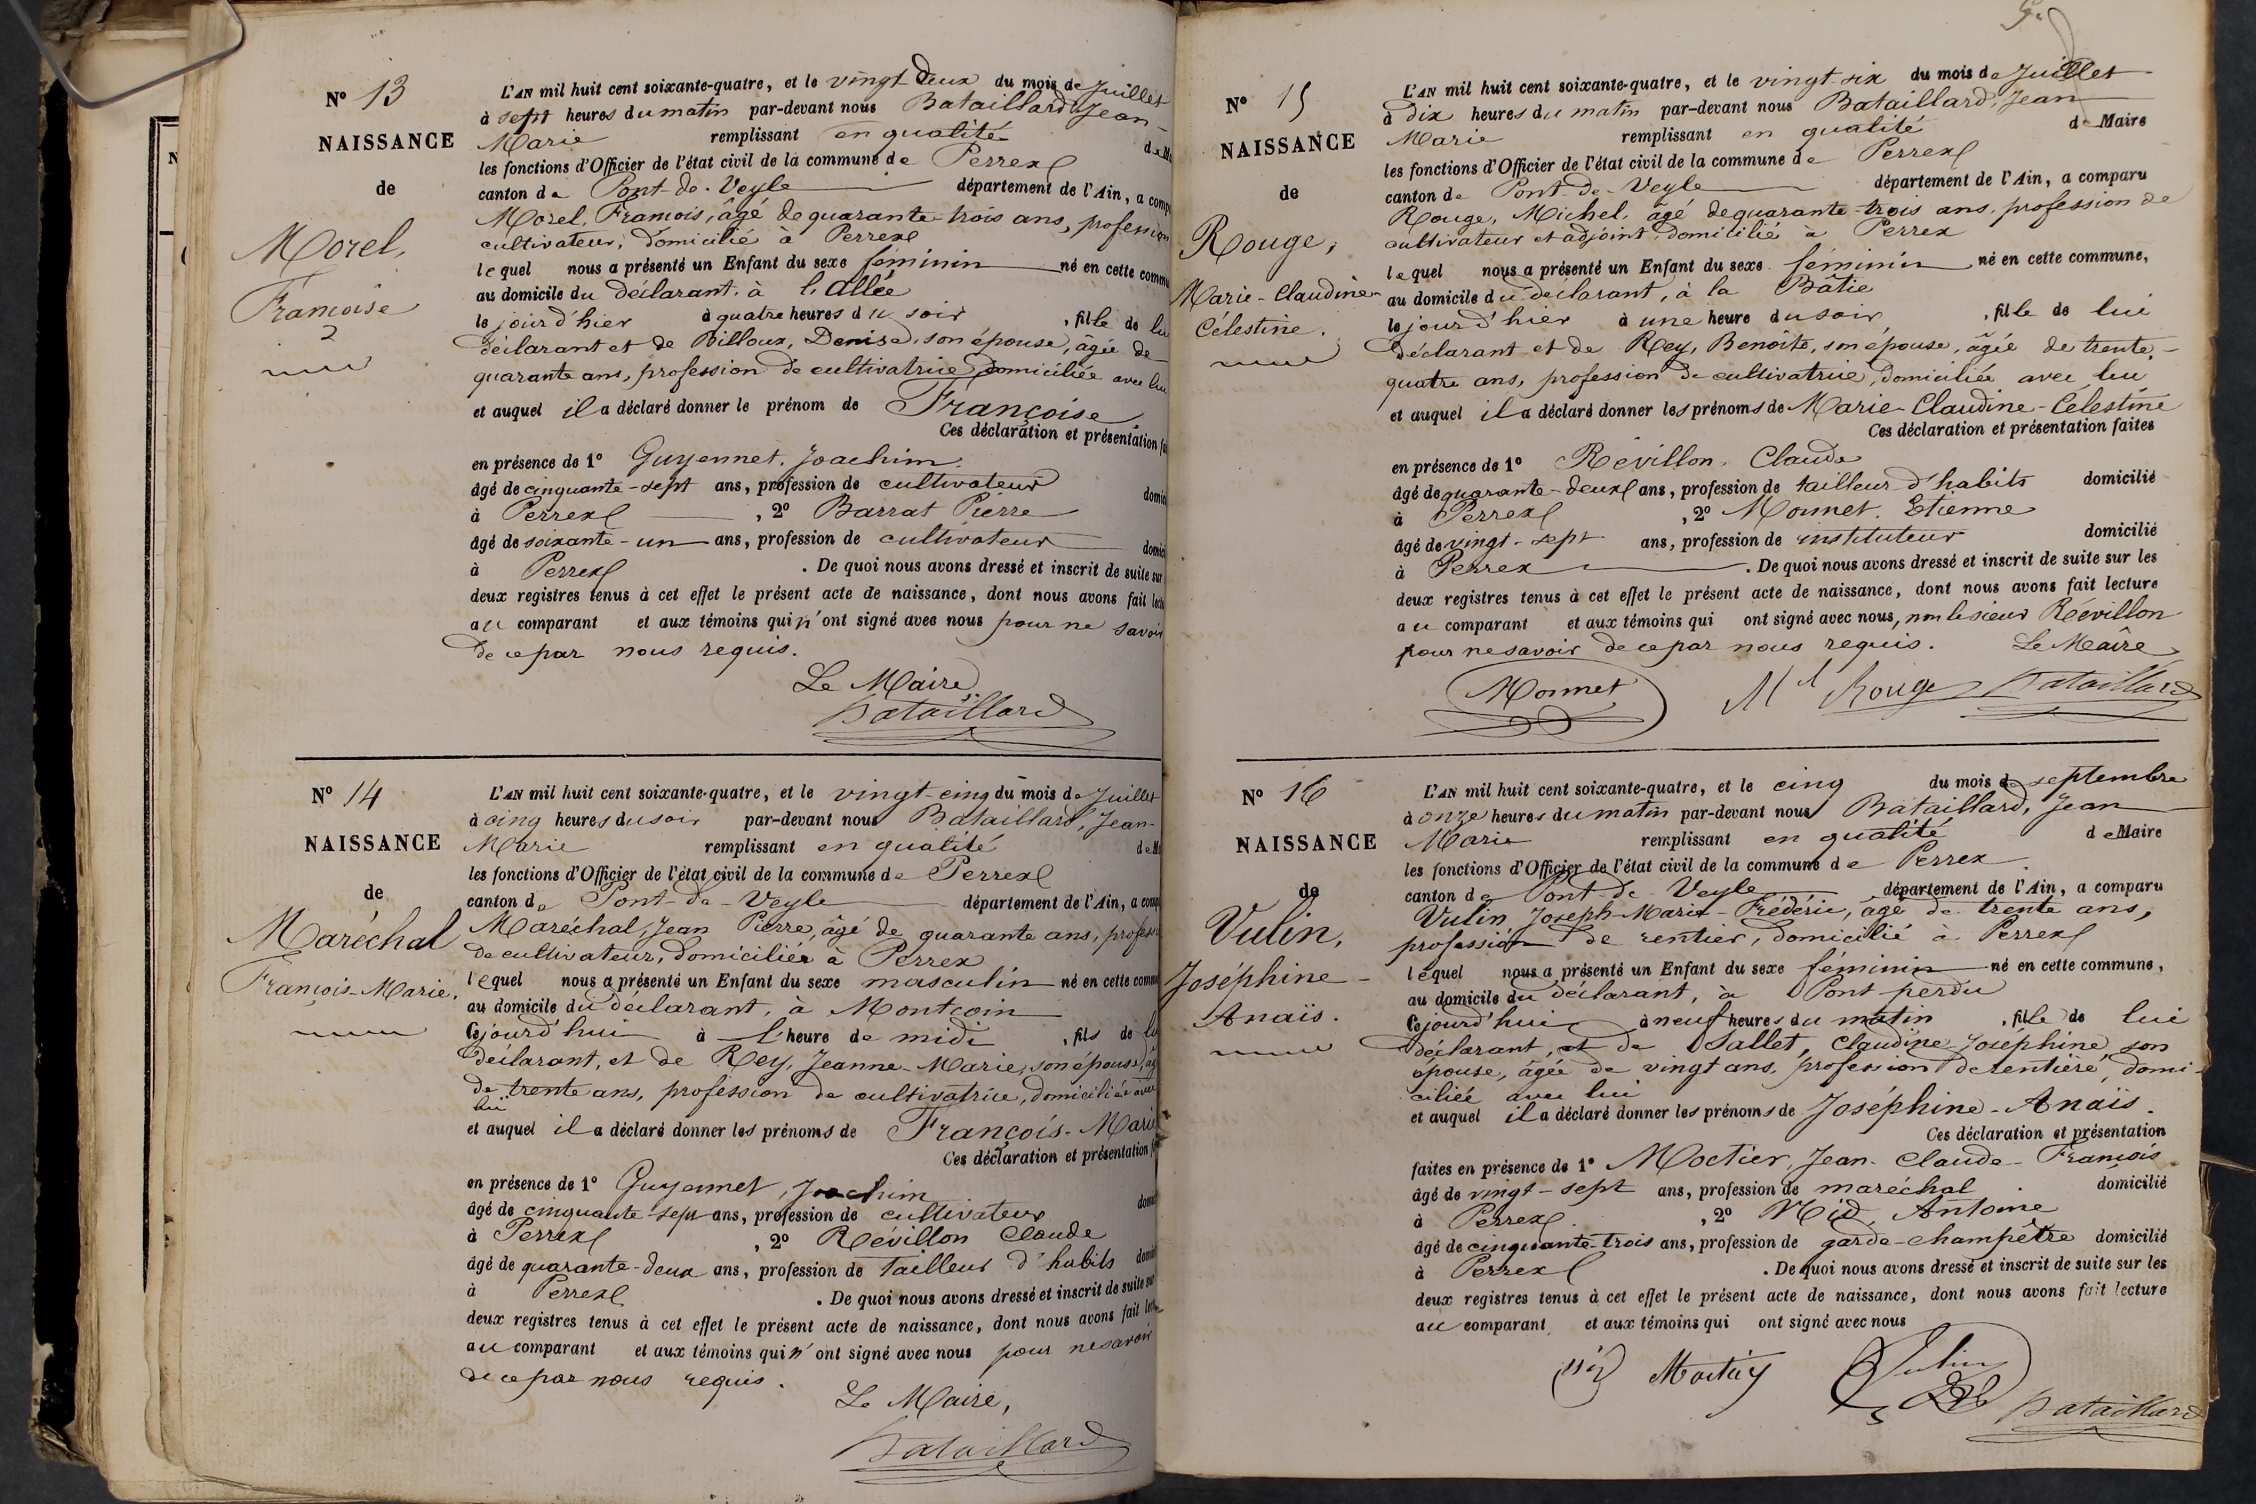 N° 13
NAISSANCE
de
Morel,
Françoise
L'AN mil huit cent soixante-quatre, et le vingt deux du mois de Juillet
à sept heures du matin par-devant nous Bataillard, Jean-
Marie remplissant en qualité de M
les fonctions d'Officier de l'état civil de la commune de Perrex
canton de Pont-de-Veyle département de l'Ain, a comp
Morel, François, âgé de quarante-trois ans, profession
cultivateur, domicilié à Perrex
lequel nous a présenté un Enfant du sexe féminin né en cette commu
au domicile du déclarant, à l'Allée
le jour d'hier à quatre heures du soir, fille de lu
déclarant et de Billoux, Denise, son épouse, âgée de
quarante ans, profession de cultivatrice domiciliée avec lui
et auquel il a déclaré donner le prénom de Françoise
Ces déclaration et présentation fai
en présence de 1° Guyennet, Joachim
âgé de cinquante-sept ans, profession de cultivateur domici
à Perrex, 2° Barrat Pierre
âgé de soixante-un ans, profession de cultivateur domici
à Perrex. De quoi nous avons dressé et inscrit de suite sur
deux registres tenus à cet effet le présent acte de naissance, dont nous avons fait lectu
au comparant et aux témoins qui n'ont signé avec nous pour ne savoir
de ce par nous requis.
Le Maire,
Bataillard
N° 14
NAISSANCE
de
Maréchal
François-Marie.
L'AN mil huit cent soixante-quatre, et le vingt-cinq du mois de Juillet
à cinq heures du soir par-devant nous Bataillard, Jean-
Marie remplissant en qualité de M
les fonctions d'Officier de l'état civil de la commune de Perrex
canton de Pont-de-Veyle département de l'Ain, a comp
Maréchal, Jean Pierre, âgé de quarante ans, profess
de cultivateur, domiciliée à Perrex
lequel nous a présenté un Enfant du sexe masculin né en cette comm
au domicile du déclarant, à Montcoin
Cejourd'hui à l'heure de midi, fils de lu
déclarant, et de Rey, Jeanne-Marie, son épouse, âg
de trente ans, profession de cultivatrice, domiciliée avec
lui
et auquel il a déclaré donner les prénoms de François-Marie
Ces déclaration et présentation f
en présence de 1° Guyennet, Joachim
âgé de cinquante-sept ans, profession de cultivateur domi
à Perrex, 2° Révillon Claude
âgé de quarante-deux ans, profession de tailleur d'habits domi
à Perrex. De quoi nous avons dressé et inscrit de suite sur
deux registres tenus à cet effet le présent acte de naissance, dont nous avons fait lec
au comparant et aux témoins qui n'ont signé avec nous pour ne savoir
de ce par nous requis.
Le Maire,
Bataillard
N° 15
NAISSANCE
de
Rouge,
Marie-Claudine-
Célestine.
L'AN mil huit cent soixante-quatre, et le vingt-six du mois de Juillet
à dix heures du matin par-devant nous Bataillard, Jean
Marie remplissant en qualité de Maire
les fonctions d'Officier de l'état civil de la commune de Perrex
canton de Pont-de-Veyle département de l'Ain, a comparu
Rouge, Michel, âgé de quarante-trois ans, profession de
cultivateur et adjoint domicilié à Perrex
lequel nous a présenté un Enfant du sexe féminin né en cette commune,
au domicile du déclarant, à la Bâtie
le jour d'hier à une heure du soir, fille de lui
déclarant et de Rey, Benoîte, son épouse, âgée de trente-
quatre ans, profession de cultivatrice, domiciliée avec lui
et auquel il a déclaré donner les prénoms de Marie-Claudine-Célestine
Ces déclaration et présentation faites
en présence de 1° Révillon, Claude
âgé de quarante-deux ans, profession de tailleur d'habits domicilié
à Perrex, 2° Monnet, Etienne
âgé de vingt-sept ans, profession de instituteur domicilié
à Perrex. De quoi nous avons dressé et inscrit de suite sur les
deux registres tenus à cet effet le présent acte de naissance, dont nous avons fait lecture
au comparant et aux témoins qui ont signé avec nous, non le sieur Révillon
pour ne savoir de ce par nous requis. Le Maire,
Monnet Mel Rouge Bataillard
N° 16
NAISSANCE
de
Vulin,
Joséphine-
Anaïs.
L'AN mil huit cent soixante-quatre, et le cinq du mois de septembre
à onze heures du matin par-devant nous Bataillard, Jean
Marie remplissant en qualité de Maire
les fonctions d'Officier de l'état civil de la commune de Perrex
canton de Pont de Veyle département de l'Ain, a comparu
Vulin, Joseph-Marie-Frédéric, âgé de trente ans,
profession de rentier, domicilié à Perrex
lequel nous a présenté un Enfant du sexe féminin né en cette commune,
au domicile du déclarant, à Pont perdu
Cejourd'hui à neuf heures du matin, fille de lui
déclarant, et de Sallet, Claudine Joséphine, son
épouse, âgée de vingt ans, profession de rentière, domi-
ciliée avec lui
et auquel il a déclaré donner les prénoms de Joséphine-Anaïs.
Ces déclaration et présentation
faites en présence de 1° Moctier, Jean-Claude-François
âgé de vingt-sept ans, profession de maréchal domicilié
à Perrex, 2° Nid, Antoine
âgé de cinquante-trois ans, profession de garde-champêtre domicilié
à Perrex. De quoi nous avons dressé et inscrit de suite sur les
deux registres tenus à cet effet le présent acte de naissance, dont nous avons fait lecture
au comparant et aux témoins qui ont signé avec nous
Vulin Bataillard